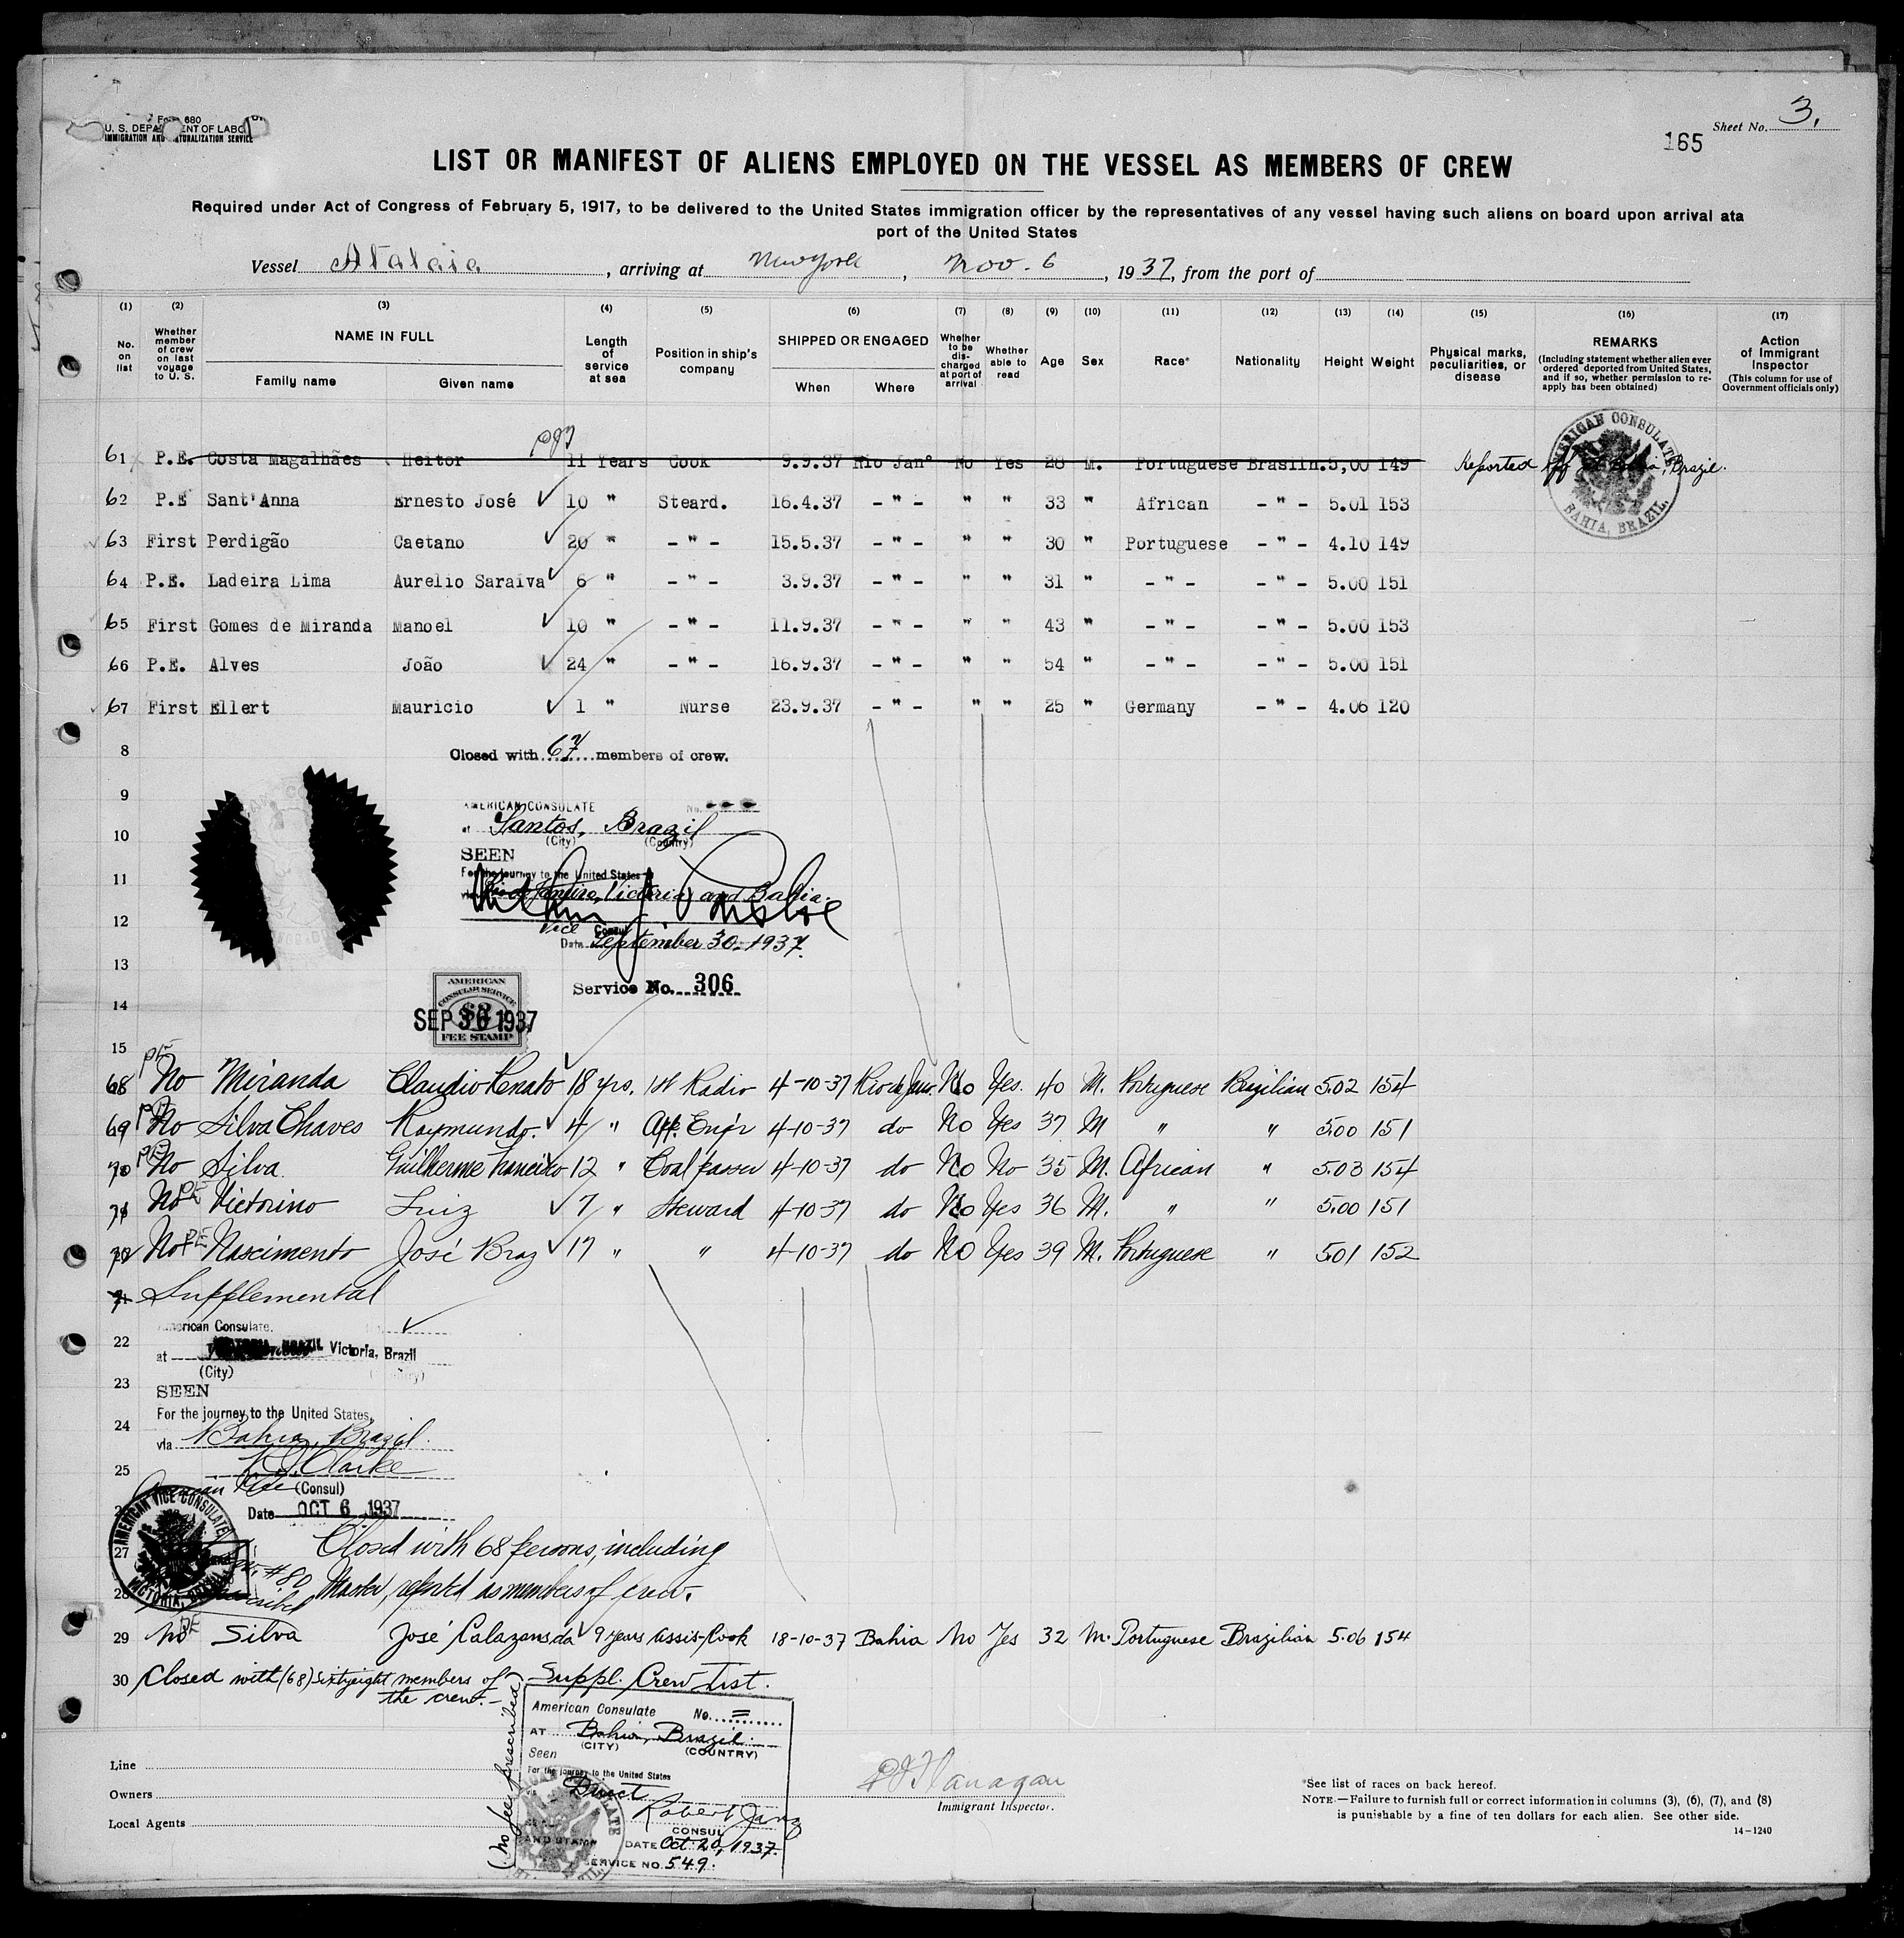 Form 680
U. S. DEPARTMENT OF LABOR
IMMIGRATION AND NATURALIZATION SERVICE
Sheet No. 3.
165
LIST OR MANIFEST OF ALIENS EMPLOYED ON THE VESSEL AS MEMBERS OF CREW
Required under Act of Congress of February 5, 1917, to be delivered to the United States immigration officer by the representatives of any vessel having such aliens on board upon arrival ata
port of the United States
Vessel Atalaia , arriving at New York , Nov. 6 , 1937, from the port of
(1) (2) (3) (4) (5) (6) (7) (8) (9) (10) (11) (12) (13) (14) (15) (16) (17)
No. on list Whether member of crew on last voyage to U. S. NAME IN FULL Family name Given name Length of service at sea Position in ship's company SHIPPED OR ENGAGED When Where Whether to be discharged at port of arrival Whether able to read Age Sex Race* Nationality Height Weight Physical marks, peculiarities, or disease REMARKS (Including statement whether alien ever ordered deported from United States, and if so, whether permission to re-apply has been obtained) Action of Immigrant Inspector (This column for use of Government officials only)
61 P.E. Costa Magalhães Heitor 11 Years Cook 9.9.37 Rio Janº No Yes 28 M. Portuguese Brasiln. 5,00 149 Reported off at Bahia, Brazil.
AMERICAN CONSULATE BAHIA, BRAZIL.
62 P.E Sant'Anna Ernesto José 10 " Steard. 16.4.37 - " - " " 33 " African - " - 5.01 153
63 First Perdigão Caetano 20 " - " - 15.5.37 - " - " " 30 " Portuguese - " - 4.10 149
64 P.E. Ladeira Lima Aurelio Saraiva 6 " - " - 3.9.37 - " - " " 31 " - " - - " - 5.00 151
65 First Gomes de Miranda Manoel 10 " - " - 11.9.37 - " - " " 43 " - " - - " - 5.00 153
66 P.E. Alves João 24 " - " - 16.9.37 - " - " " 54 " - " - - " - 5.00 151
67 First Ellert Mauricio 1 " Nurse 23.9.37 - " - " " 25 " Germany - " - 4.06 120
8 Closed with 67 members of crew.
9 AMERICAN CONSULATE No.
10 at Santos, Brazil
(City) (Country)
SEEN
For the journey to the United States
11 via Rio de Janeiro, Victoria and Bahia.
12
Vice Consul
Date September 30, 1937.
13
Service No. 306
14 AMERICAN CONSULAR SERVICE $2 FEE STAMP
SEP 30 1937
15
68 PE No Miranda Claudio Renato 18 yrs. 1st Radio 4-10-37 Rio de Jano. No Yes. 40 M. Portuguese Brazilian 5.02 154
69 PE No Silva Chaves Raymundo. 4 " App. Eng'r 4-10-37 do No Yes 37 M " " 5.00 151
70 PE No Silva Guilherme Francisco 12 " Coal passer 4-10-37 do No No 35 M. African " 5.03 154
71 No PE Victorino Luiz 7 " Steward 4-10-37 do No Yes 36 M. " " 5.00 151
72 No PE Nascimento José Braz 17 " " 4-10-37 do No Yes 39 M. Portuguese " 5.01 152
Supplemental
American Consulate.
22 at Victoria, Brazil
(City) (Country)
23 SEEN
For the journey to the United States,
24 via Bahia, Brazil.
25 Clarke
American Vice (Consul)
Date OCT 6 1937
AMERICAN VICE CONSULATE VICTORIA, BRAZIL
27 Closed with 68 persons, including
28 Master, reported as members of crew.
29 No PE Silva José Calazans da 9 years Assis-Cook 18-10-37 Bahia No Yes 32 M. Portuguese Brazilian 5.06 154
30 Closed with (68) Sixtyeight members of
the crew.-
Suppl. Crew List.
American Consulate No.
AT Bahia, Brazil
(CITY) (COUNTRY)
Seen
For the journey to the United States
Direct
Robert Janz
CONSUL
DATE Oct. 20, 1937.
SERVICE NO. 549.
(No fee prescribed)
Line
Owners
Local Agents
Flanagan
Immigrant Inspector.
*See list of races on back hereof.
NOTE.—Failure to furnish full or correct information in columns (3), (6), (7), and (8)
is punishable by a fine of ten dollars for each alien. See other side.
14-1240